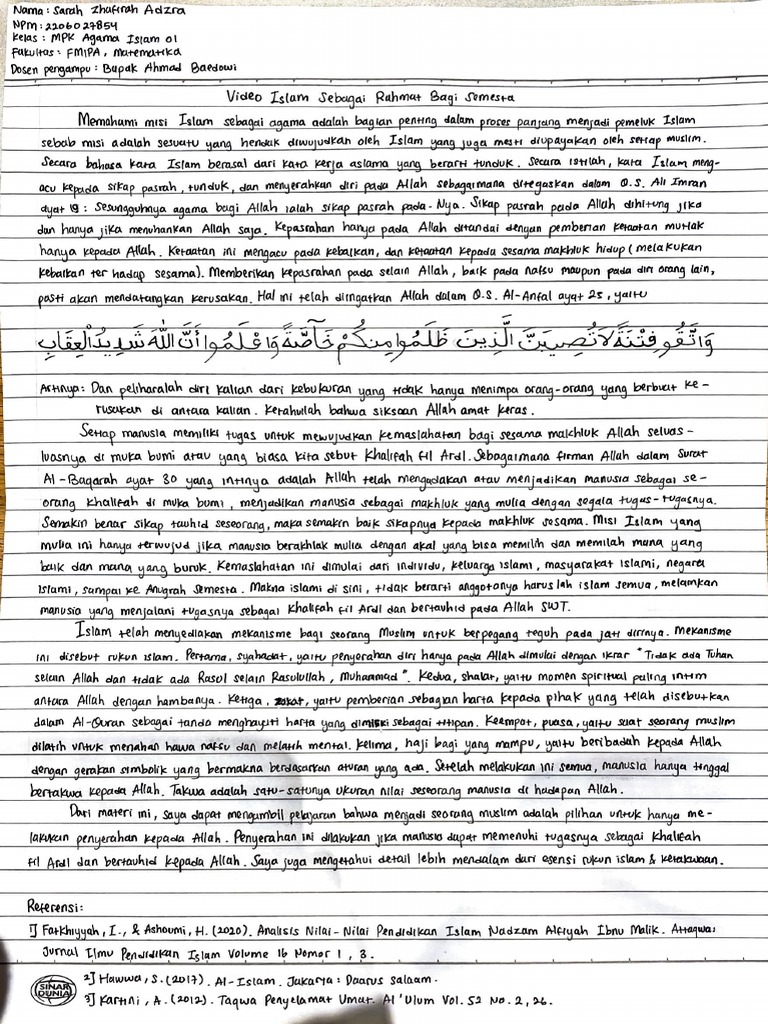 Nama : Sarah Zhafirah Adzra
NPM : 2206027854
Kelas : MPK Agama Islam 01
Fakultas : FMIPA, Matematika
Dosen pengampu : Bapak Ahmad Baedowi
Video Islam Sebagai Rahmat Bagi Semesta
Memahami misi Islam sebagai agama adalah bagian penting dalam proses panjang menjadi pemeluk Islam
sebab misi adalah sesuatu yang hendak diwujudkan oleh Islam yang juga mesti diupayakan oleh setiap muslim.
Secara bahasa kata Islam berasal dari kata kerja aslama yang berarti tunduk. Secara istilah, kata Islam meng-
acu kepada sikap pasrah, tunduk, dan menyerahkan diri pada Allah sebagaimana ditegaskan dalam Q.S. Ali Imran
ayat 19 : Sesungguhnya agama bagi Allah ialah sikap pasrah pada-Nya. Sikap pasrah pada Allah dihitung jika
dan hanya jika menuhankan Allah saja. Kepasrahan hanya pada Allah ditandai dengan pemberian ketaatan mutlak
hanya kepada Allah. Ketaatan ini mengacu pada kebaikan, dan ketaatan kepada sesama makhluk hidup (melakukan
kebaikan terhadap sesama). Memberikan kepasrahan pada selain Allah, baik pada nafsu maupun pada diri orang lain,
pasti akan mendatangkan kerusakan. Hal ini telah diingatkan Allah dalam Q.S. Al-Anfal ayat 25, yaitu
وَاتَّقُو فِتْنَةً لَا تُصِيبَنَّ الَّذِينَ ظَلَمُوا مِنكُمْ خَاصَّةً وَاعْلَمُوا أَنَّ اللَّهَ شَدِيدُ الْعِقَابِ
Artinya : Dan peliharalah diri kalian dari keburukan yang tidak hanya menimpa orang-orang yang berbuat ke-
rusakan di antara kalian. Ketahuilah bahwa siksaan Allah amat keras.
Setiap manusia memiliki tugas untuk mewujudkan kemaslahatan bagi sesama makhluk Allah seluas-
luasnya di muka bumi atau yang biasa kita sebut Khalifah fil Ardl. Sebagaimana firman Allah dalam Surat
Al-Baqarah ayat 30 yang intinya adalah Allah telah mengadakan atau menjadikan manusia sebagai se-
orang Khalifah di muka bumi, menjadikan manusia sebagai makhluk yang mulia dengan segala tugas-tugasnya.
Semakin benar sikap tauhid seseorang, maka semakin baik sikapnya kepada makhluk sesama. Misi Islam yang
mulia ini hanya terwujud jika manusia berakhlak mulia dengan akal yang bisa memilih dan memilah mana yang
baik dan mana yang buruk. Kemaslahatan ini dimulai dari individu, keluarga islami, masyarakat islami, negara
islami, sampai ke Anugrah Semesta. Makna islami di sini, tidak berarti anggotanya haruslah islam semua, melainkan
manusia yang menjalani tugasnya sebagai Khalifah fil Ardl dan bertauhid pada Allah SWT.
Islam telah menyediakan mekanisme bagi seorang Muslim untuk berpegang teguh pada jati dirinya. Mekanisme
ini disebut rukun islam. Pertama, syahadat, yaitu penyerahan diri hanya pada Allah dimulai dengan ikrar "Tidak ada Tuhan
selain Allah dan tidak ada Rasul selain Rasulullah, Muhammad". Kedua, shalat, yaitu momen spiritual paling intim
antara Allah dengan hambanya. Ketiga, zakat, yaitu pemberian sebagian harta kepada pihak yang telah disebutkan
dalam Al-Quran sebagai tanda menghayati harta yang dimiliki sebagai titipan. Keempat, puasa, yaitu saat seorang muslim
dilatih untuk menahan hawa nafsu dan melatih mental. Kelima, haji bagi yang mampu, yaitu beribadah kepada Allah
dengan gerakan simbolik yang bermakna berdasarkan aturan yang ada. Setelah melakukan ini semua, manusia hanya tinggal
bertakwa kepada Allah. Takwa adalah satu-satunya ukuran nilai seseorang manusia di hadapan Allah.
Dari materi ini, saya dapat mengambil pelajaran bahwa menjadi seorang muslim adalah pilihan untuk hanya me-
lakukan penyerahan kepada Allah. Penyerahan ini dilakukan jika manusia dapat memenuhi tugasnya sebagai Khalifah
fil Ardl dan bertauhid kepada Allah. Saya juga mengetahui detail lebih mendalam dari esensi rukun islam & ketakwaan.
Referensi :
1] Fatkhiyyah, I., & Ashoumi, H. (2020). Analisis Nilai-Nilai Pendidikan Islam Nadzam Alfiyah Ibnu Malik. Attaqwa:
Jurnal Ilmu Pendidikan Islam Volume 16 Nomor 1, 3.
2] Hawwa, S. (2017). Al-Islam. Jakarta : Daarus Salaam.
3] Kartini, A. (2012). Taqwa Penyelamat Umat. Al 'Ulum Vol. 52 No. 2, 26.
SINAR
DUNIA